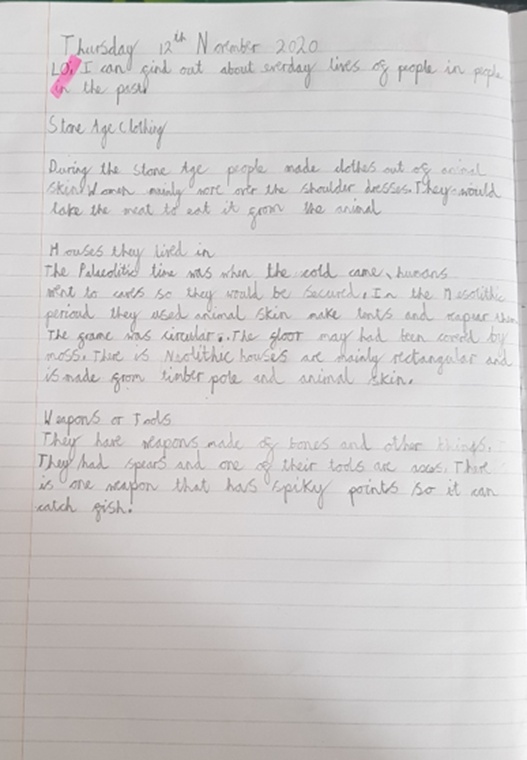 Thursday 12th November 2020
LO: I can find out about everday lives of people in people
in the past
Stone Age Clothing
During the Stone Age people made clothes out of animal
skin. Women mainly wore over the shoulder dresses. They would
take the meat to eat it from the animal
Houses they lived in
The Palaeolitic time was when the cold came, humans
went to caves so they would be secured. In the Mesolithic
perioud they used animal skin make tents and them
The frame was circular. The floor may had been coverd by
moss. There is Neolithic houses are mainly rectangular and
is made from timber pole and animal skin.
Weapons or Tools
They have weapons made of bones and other things.
They had spears and one of their tools are axes. There
is one weapon that has spiky points so it can
catch fish.